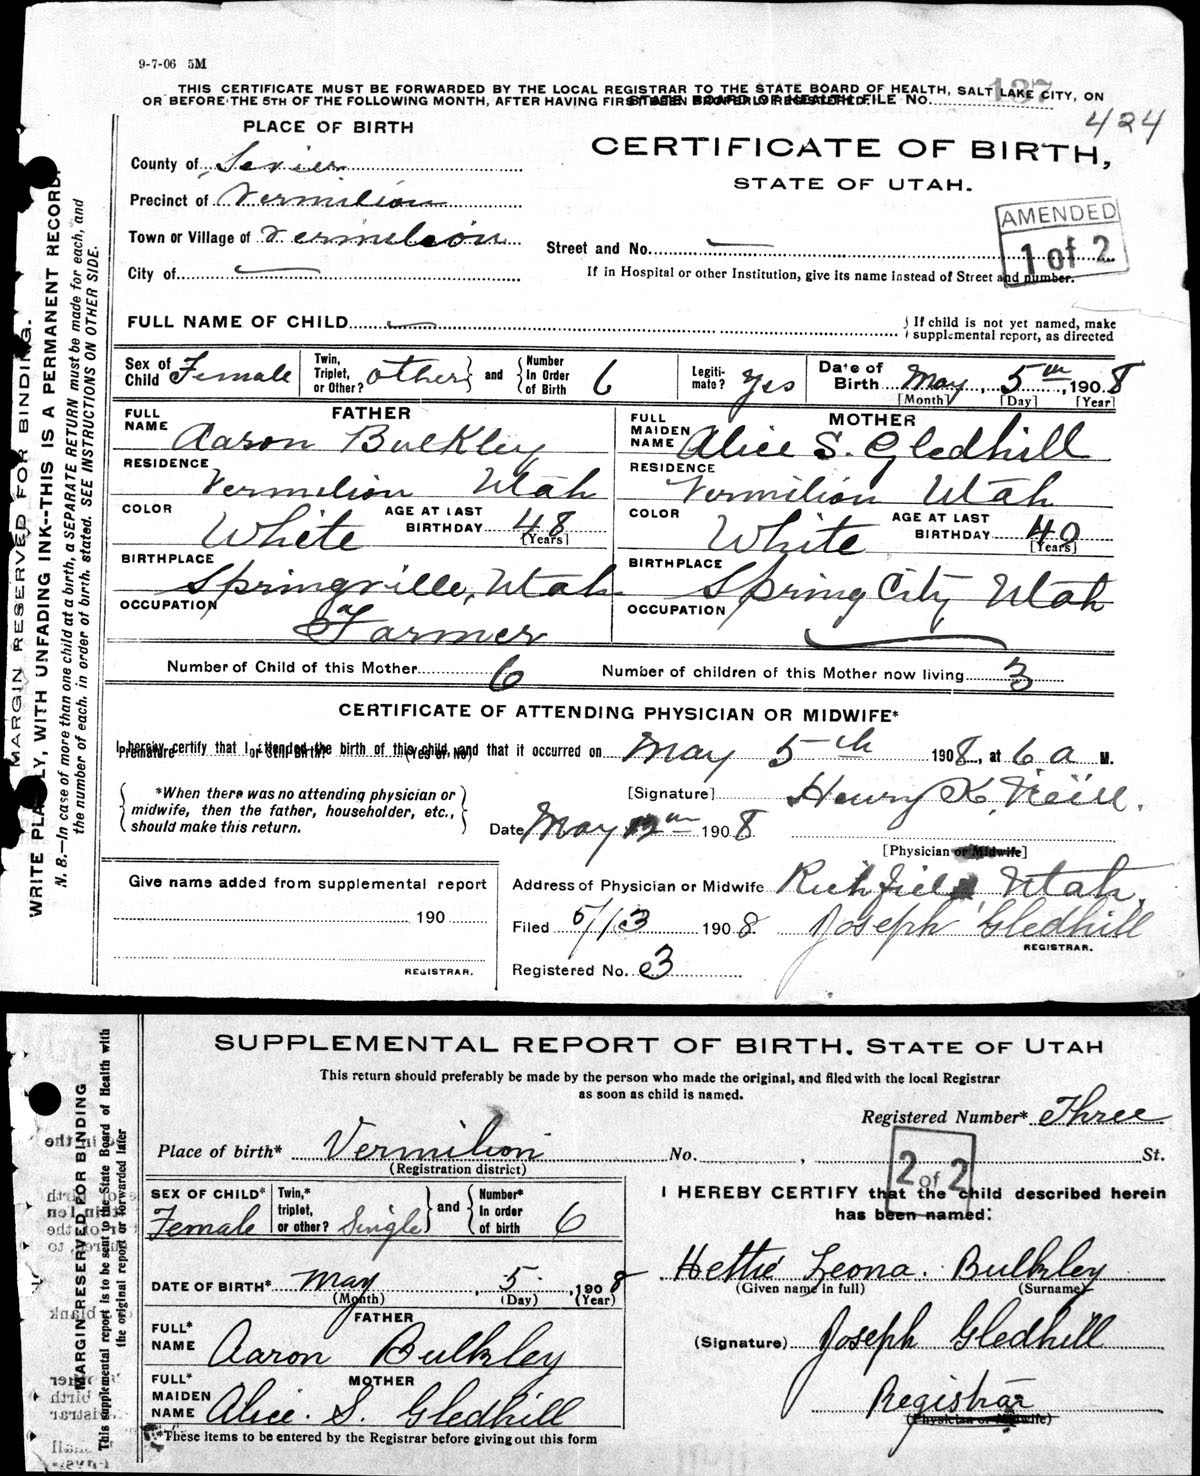 9-7-06 5M
THIS CERTIFICATE MUST BE FORWARDED BY THE LOCAL REGISTRAR TO THE STATE BOARD OF HEALTH, SALT LAKE CITY, ON
OR BEFORE THE 5TH OF THE FOLLOWING MONTH, AFTER HAVING FIRST BEEN PROPERLY REGISTERED.
STATE BOARD OF HEALTH FILE No. 137
424
PLACE OF BIRTH
County of Sevier
Precinct of Vermilion
Town or Village of Vermilion
City of —
CERTIFICATE OF BIRTH,
STATE OF UTAH.
AMENDED
1 of 2
Street and No. —
If in Hospital or other Institution, give its name instead of Street and number.
FULL NAME OF CHILD —
If child is not yet named, make
supplemental report, as directed
Sex of Child Female
Twin, Triplet, or Other? other and Number In Order of Birth 6
Legiti-mate? Yes
Date of Birth May 5th, 1908
[Month] [Day] [Year]
FATHER
FULL NAME Aaron Bulkley
RESIDENCE
Vermilion Utah
COLOR White AGE AT LAST BIRTHDAY 48 [Years]
BIRTHPLACE
Springville, Utah
OCCUPATION
Farmer
MOTHER
FULL MAIDEN NAME Alice S. Gledhill
RESIDENCE
Vermilion Utah
COLOR White AGE AT LAST BIRTHDAY 40 [Years]
BIRTHPLACE
Spring City Utah
OCCUPATION
Number of Child of this Mother 6 Number of children of this Mother now living 3
CERTIFICATE OF ATTENDING PHYSICIAN OR MIDWIFE*
I hereby certify that I attended the birth of this child, and that it occurred on May 5th 1908, at 6 a M.
Premature or Still Birth? (Yes or No)
*When there was no attending physician or
midwife, then the father, householder, etc.,
should make this return.
[Signature] Henry K.
Date May 1908
[Physician or Midwife]
Give name added from supplemental report
190
REGISTRAR.
Address of Physician or Midwife Richfield, Utah.
Filed 5/13 1908. Joseph Gledhill
REGISTRAR.
Registered No. 3
MARGIN RESERVED FOR BINDING.
WRITE PLAINLY, WITH UNFADING INK--THIS IS A PERMANENT RECORD.
N. B.—In case of more than one child at a birth, a SEPARATE RETURN must be made for each, and
the number of each, in order of birth, stated. SEE INSTRUCTIONS ON OTHER SIDE.
SUPPLEMENTAL REPORT OF BIRTH. STATE OF UTAH
This return should preferably be made by the person who made the original, and filed with the local Registrar
as soon as child is named.
Registered Number* Three
Place of birth* Vermilion No. , St.
(Registration district)
2 of 2
SEX OF CHILD* Female
Twin,* triplet, or other? Single and Number* In order of birth 6
DATE OF BIRTH* May 5, 1908
(Month) (Day) (Year)
FATHER
FULL* NAME Aaron Bulkley
MOTHER
FULL* MAIDEN NAME Alice. S. Gledhill
*These items to be entered by the Registrar before giving out this form
I HEREBY CERTIFY that the child described herein
has been named:
Hettie Leona. Bulkley
(Given name in full) (Surname)
(Signature) Joseph Gledhill
Registrar
(Physician or Midwife)
MARGIN RESERVED FOR BINDING
This supplemental report is to be sent to the State Board of Health with
the original report or forwarded later